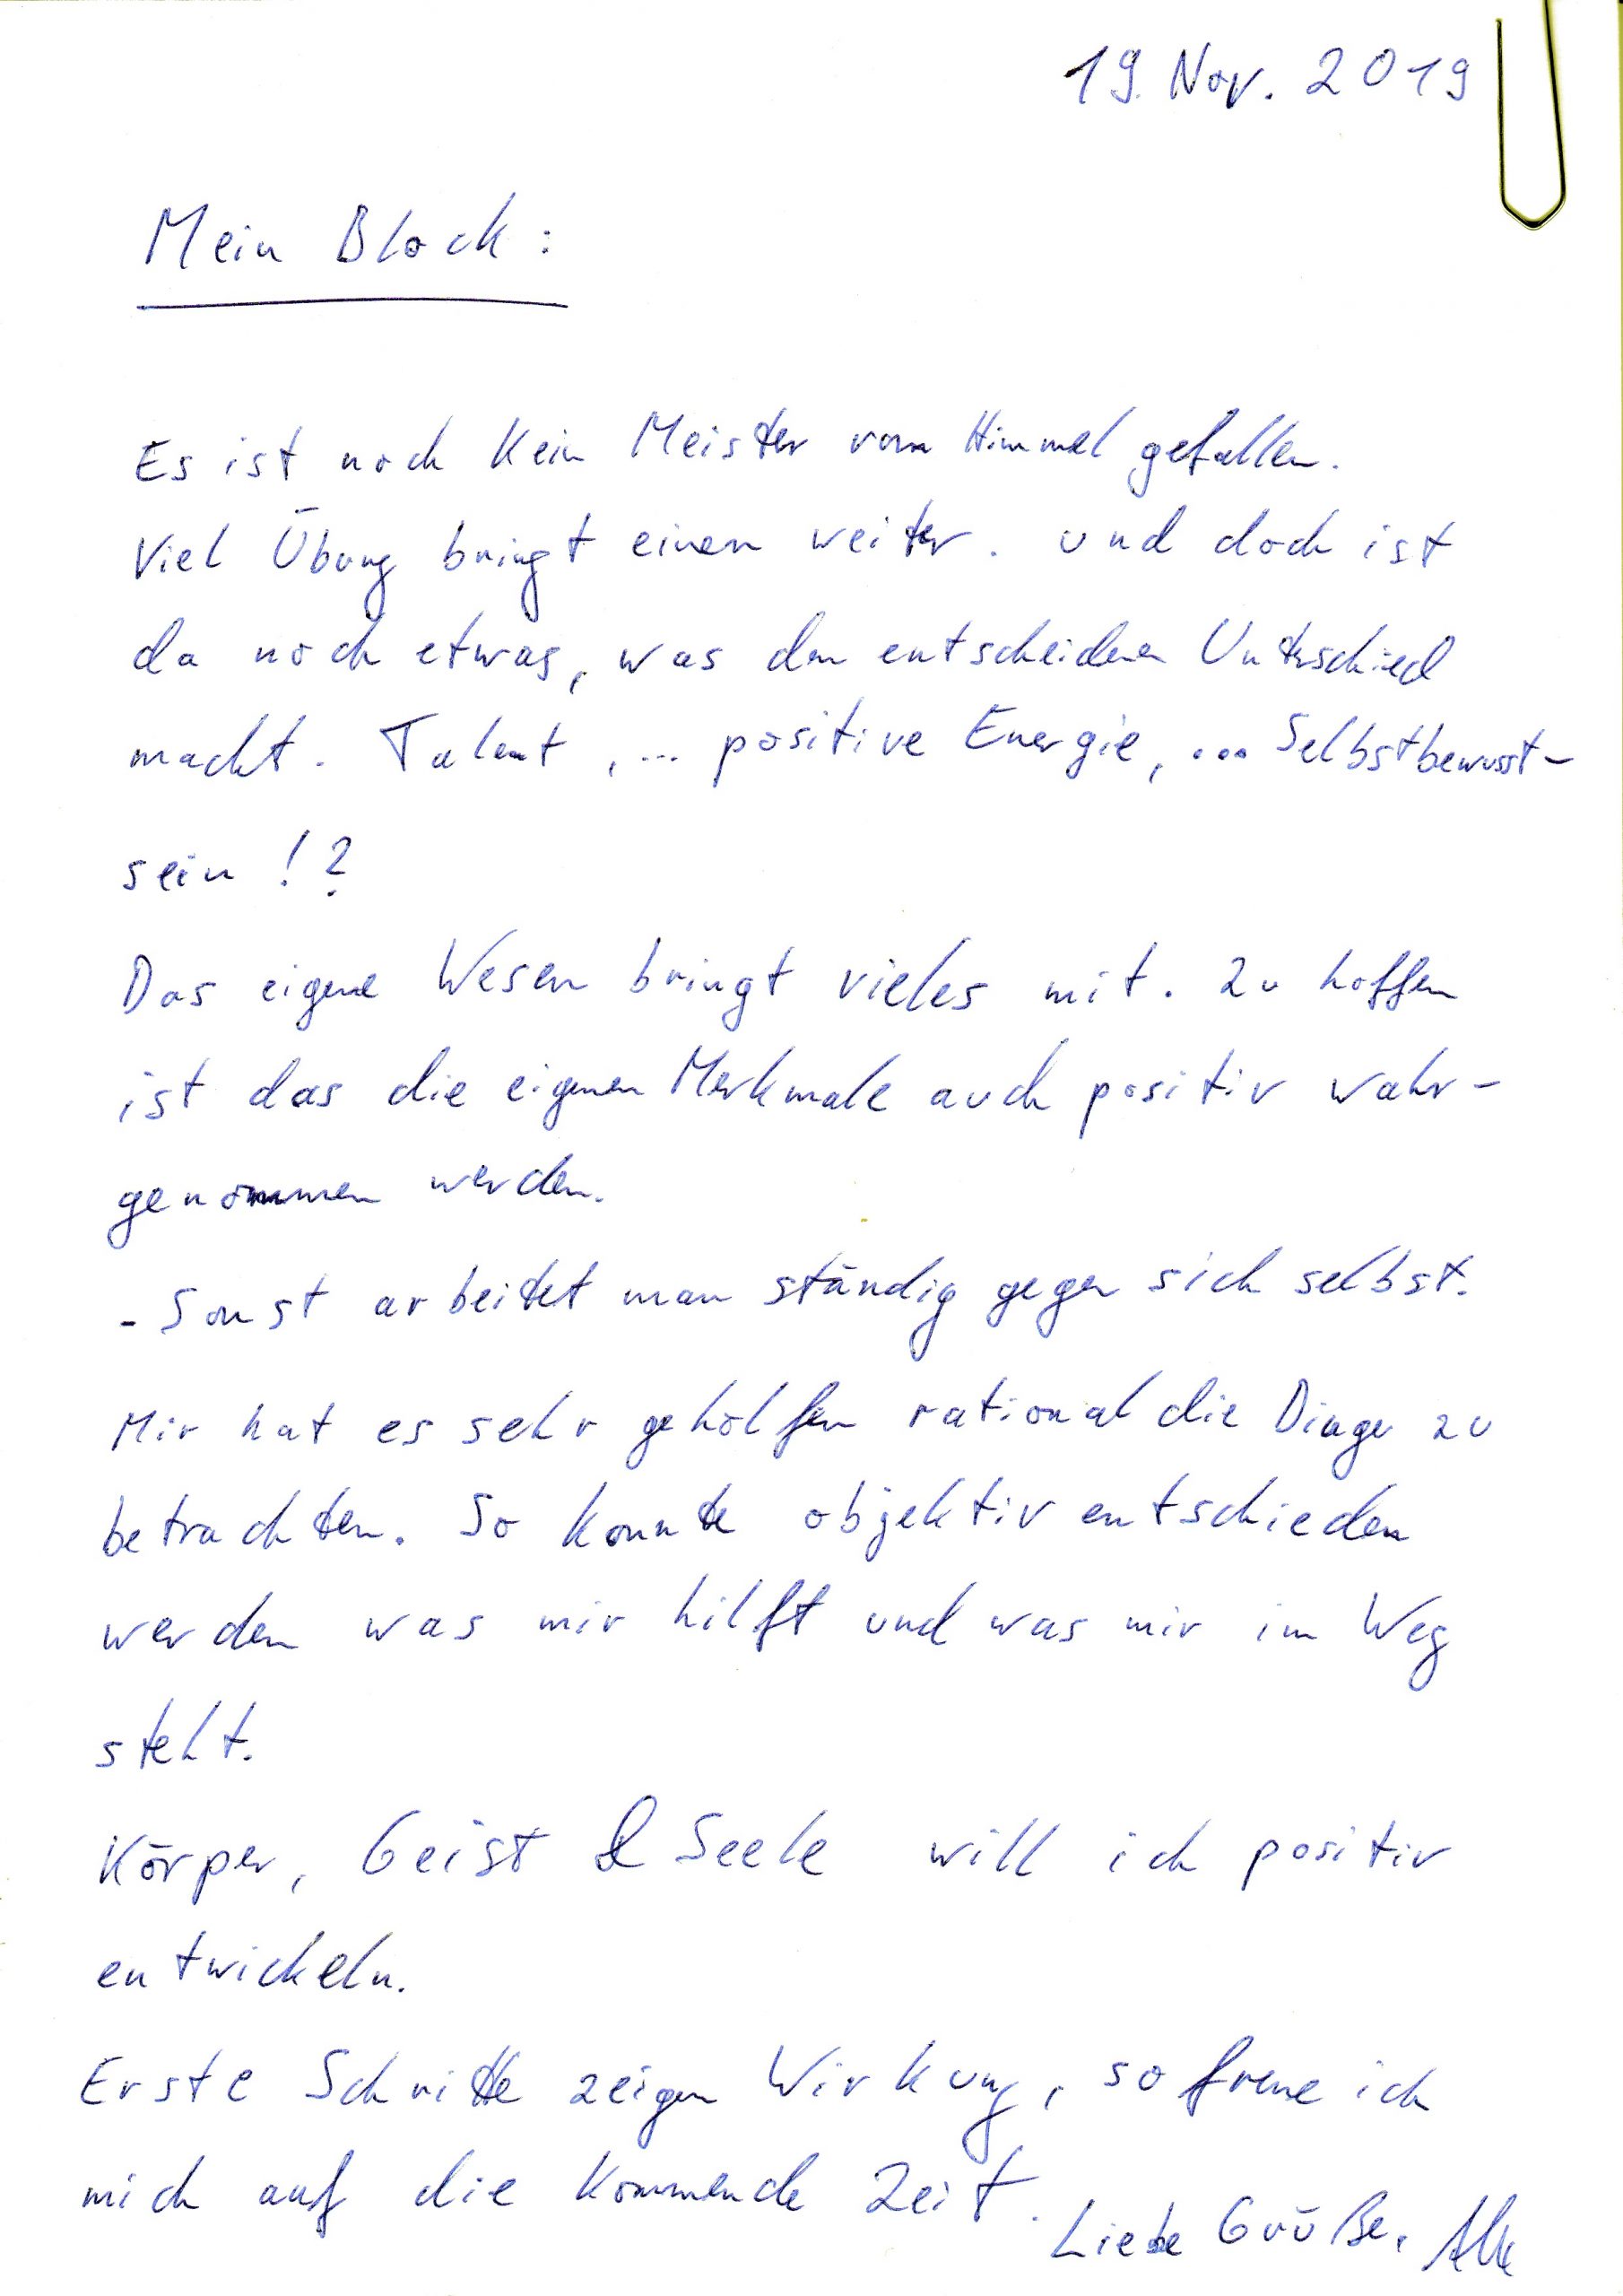 19. Nov. 2019
Mein Block:
Es ist noch kein Meister vom Himmel gefallen.
Viel Übung bringt einen weiter. und doch ist
da noch etwas, was den entscheidenen Unterschied
macht. Talent, ... positive Energie, ... Selbstbewusst-
sein !?
Das eigene Wesen bringt vieles mit. Zu hoffen
ist das die eigenen Merkmale auch positiv wahr-
genommen werden.
- Sonst arbeitet man ständig gegen sich selbst.
Mir hat es sehr geholfen rational die Dinge zu
betrachten. So konnte objektiv entschieden
werden was mir hilft und was mir im Weg
steht.
Körper, Geist & Seele will ich positiv
entwickeln.
Erste Schritte zeigen Wirkung, so freue ich
mich auf die kommende Zeit.
Liebe Grüße,